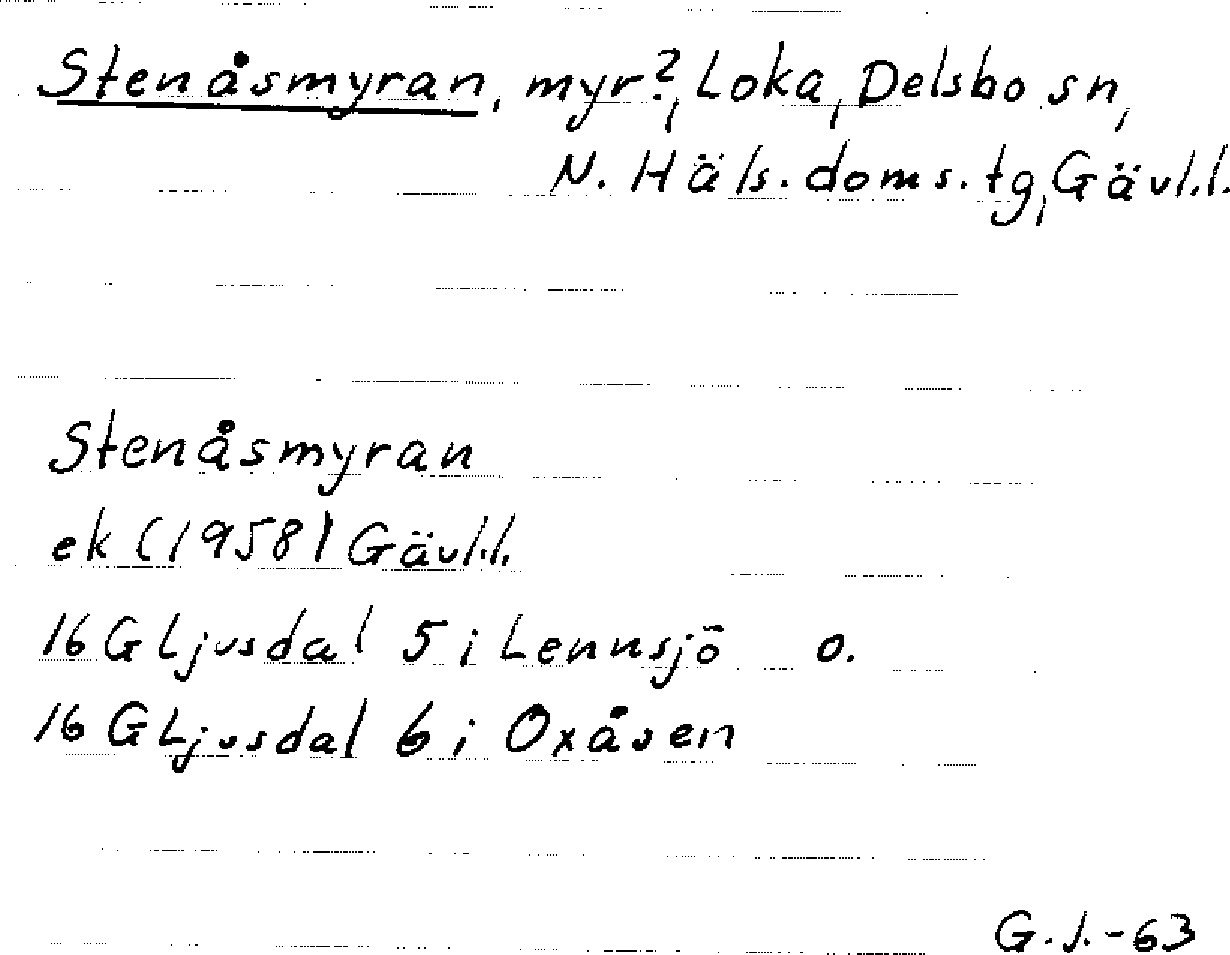 Stenåsmyran, myr?, Loka, Delsbo sn,
N. Häls. doms. tg, Gävl.l.
Stenåsmyran
ek (1958) Gävl.l.
16 G Ljusdal 5 i Lennsjö o.
16 G Ljusdal 6 i Oxåsen
G.J.-63